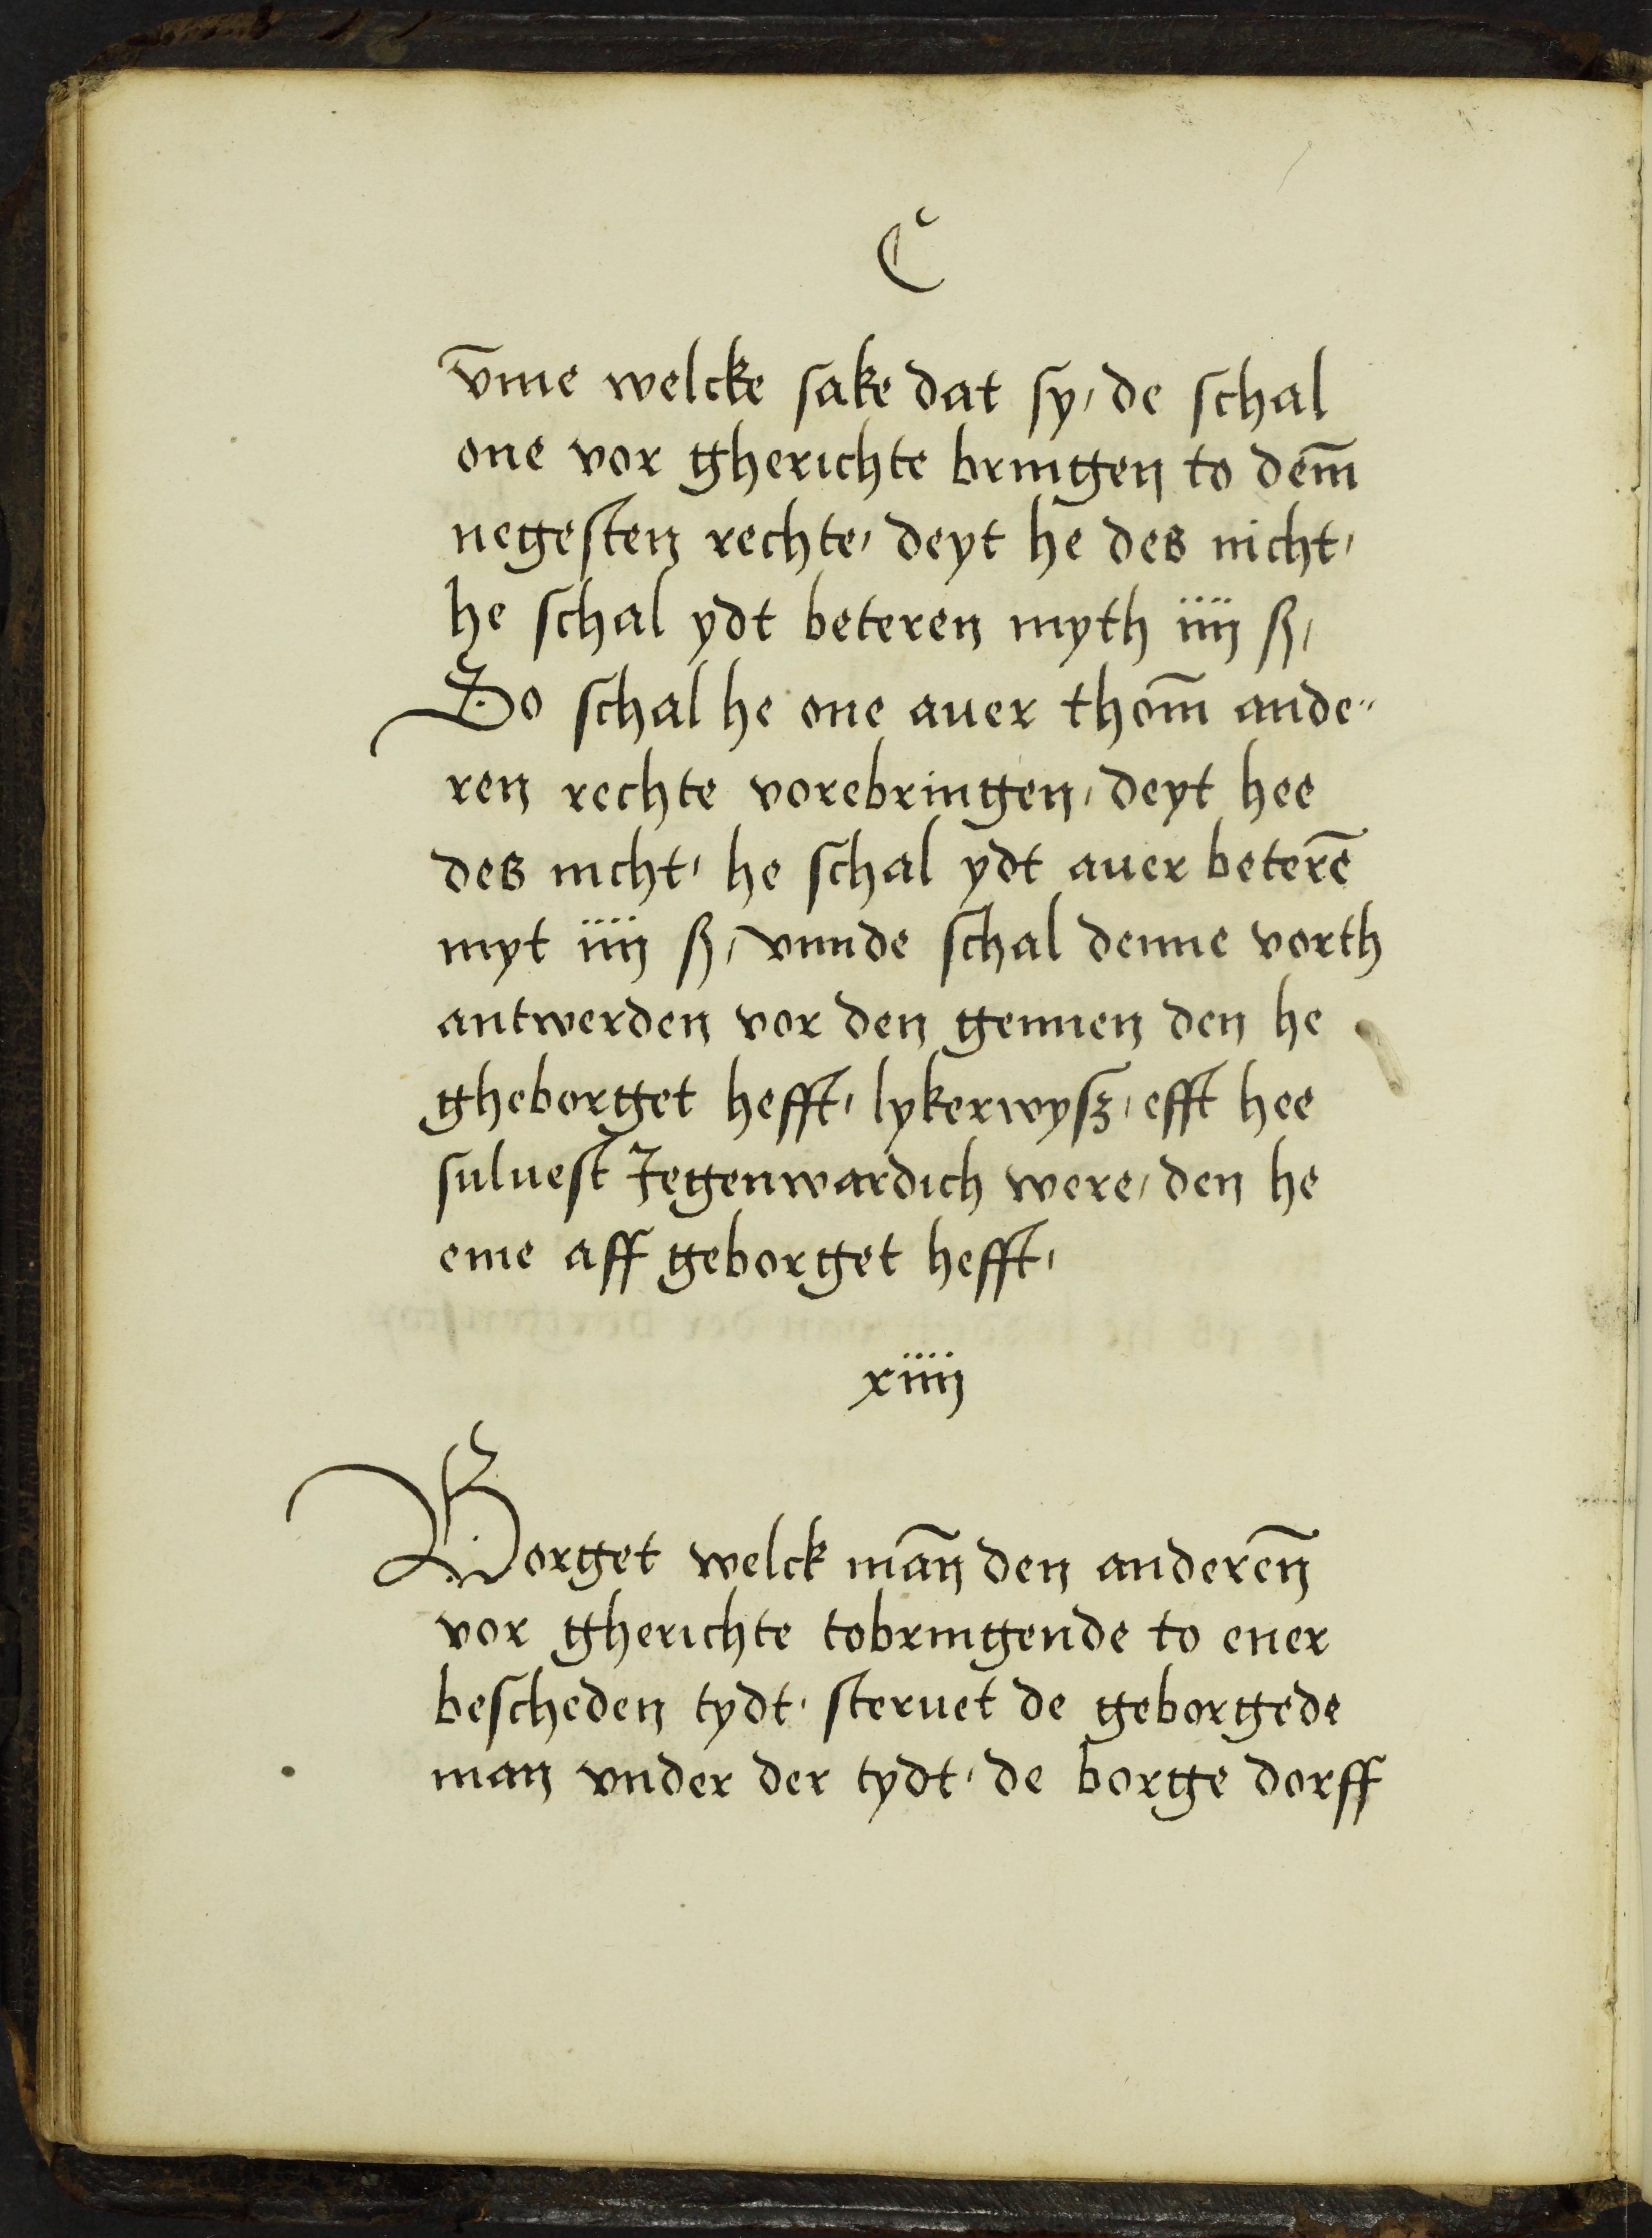 C
v̄me welcke sake dat sy, de schal
one vor gherichte bringen to dem̄
negesten rechte, deyt he des nicht,
he schal ydt beteren myth iiij ß,
So schal he one auer thom̄ ande-
ren rechte vorebringen, deyt hee
des nicht, he schal ydt auer beterē
myt iiij ß, vnnde schal denne vorth
antwerden vor den gennen den he
gheborget hefft, lykerwysz, efft hee
suluest Jegenwardich were, den he
eme aff geborget hefft,
xiiij
Borget welck mān den anderēn
vor gherichte tobringende to ener
bescheden tydt, steruet de geborgede
man vnder der tydt, de borge dorff